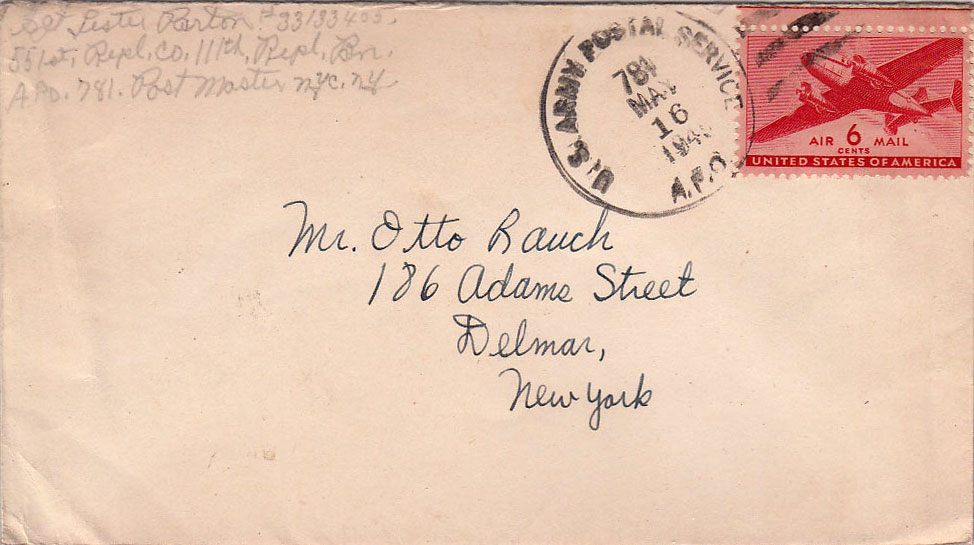 Sgt Lester Barton #33133403.
551st, Repl. Co. 111th, Repl, Bn.
A Po. 781. Post Master nyc. ny
U.S. ARMY POSTAL SERVICE
781
MAY
16
A.P.O.
AIR 6 MAIL
CENTS
UNITED STATES OF AMERICA
Mr. Otto Rauch
186 Adams Street
Delmar,
New York